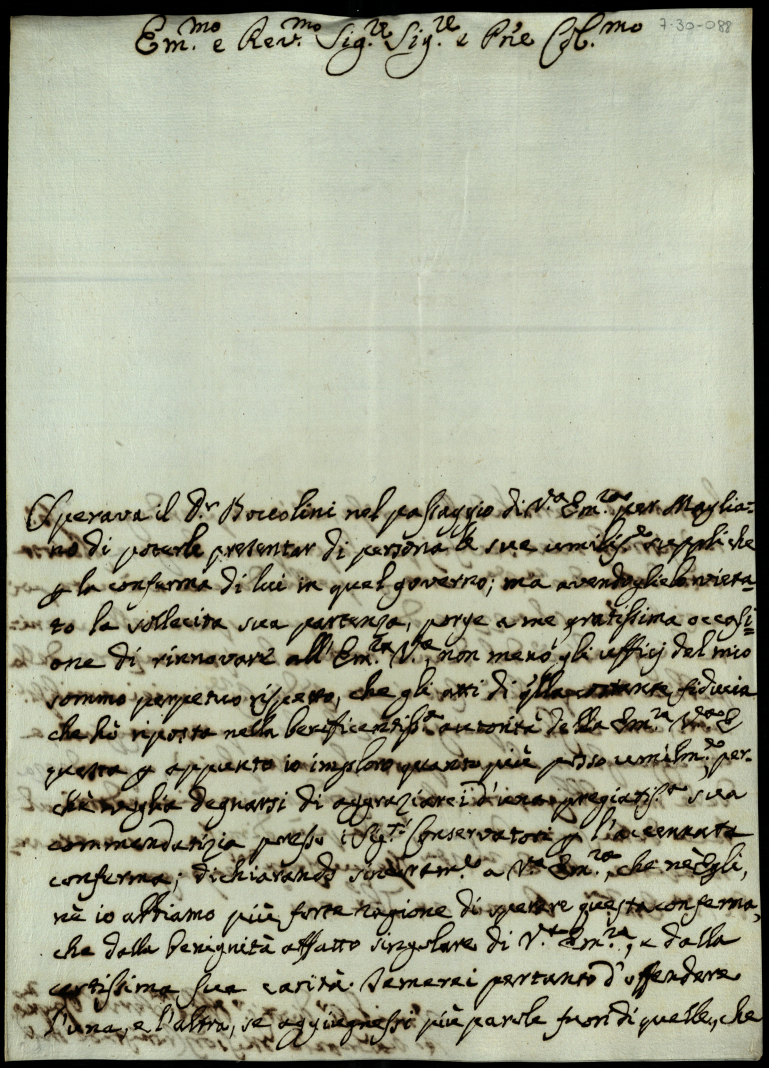 7-30-088
Em.mo e Rev.mo Sig.re Sig.re e Pñe Col.mo
Sperava il Dr Boccolini nel passaggio di V.a Em.za per Maglia=
no di poterle presentar di persona le sue umiliss.e suppliche
p la conferma di lui in quel governo; ma avendoglielo vieta=
to la sollecita sua partenza, porge a me gratissima occasi=
one di rinnovare all'Em.za V.a, non meno gli ufficj del mio
sommo perpetuo rispetto, che gli atti di qlla costante fiducia
che hò riposta nella beneficentiss.a autorità della Em.za V.ra E
questa p appunto io imploro quanto più posso umilm.te, per-
chè voglia degnarsi di aggraziarci d'una pregiatiss.a sua
commendatizia presso i Sig.ri Conservatori p l'accennata
conferma; dichiarando sinceram.te a V.a Em.za, che nè Egli,
nè io abbiamo più forte ragione di sperare questa conferma,
che dalla benignità affatto singolare di V.a Em.za, e dalla
certissima sua carità. Temerei pertanto d'offendere
l'una, e l'altra, se aggiugnessi più parole fuori di quelle, che